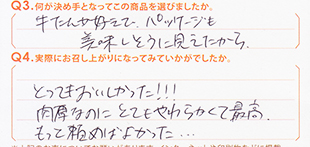 Q3.何が決め手となってこの商品を選びましたか。
牛たんが好きで、パッケージも
美味しそうに見えたから。
Q4.実際にお召し上がりになってみていかがでしたか。
とってもおいしかった!!!
肉厚なのにとてもやわらかくて最高。
もって頼めばよかった…